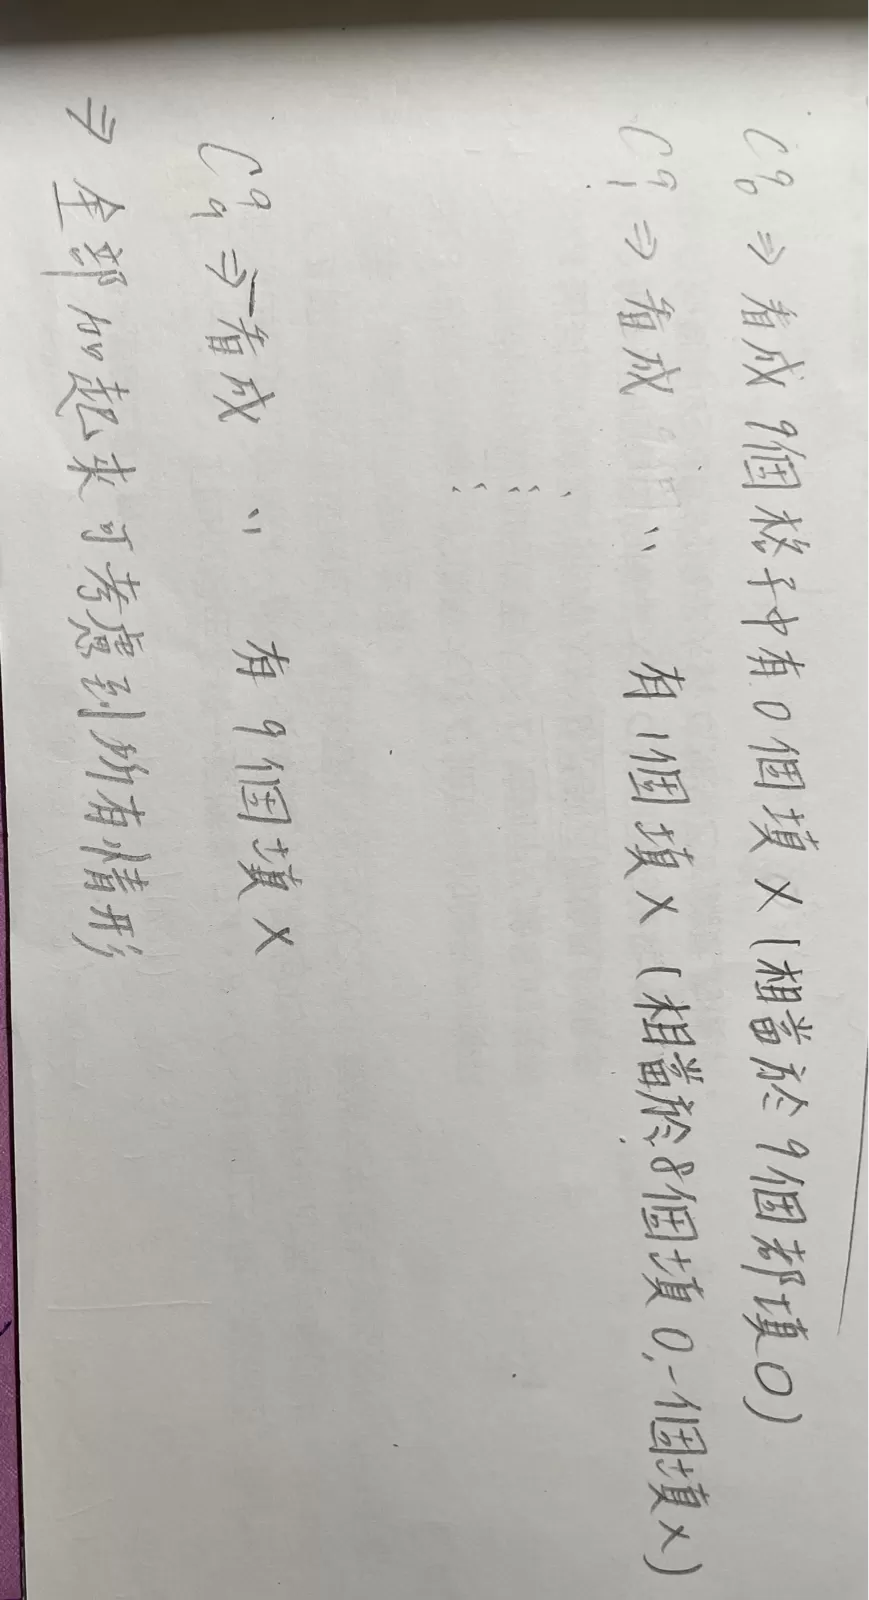 C⁹₀ ⇒ 看成 9個格子中有 0 個填 × (相當於 9個都填O)
C⁹₁ ⇒ 看成 〃 有 1個填 × (相當於 8個填 O, 一個填 ×)
⋮
C⁹₉ ⇒ 看成 〃 有 9個填 ×
⇒ 全部加起來可考慮到所有情形